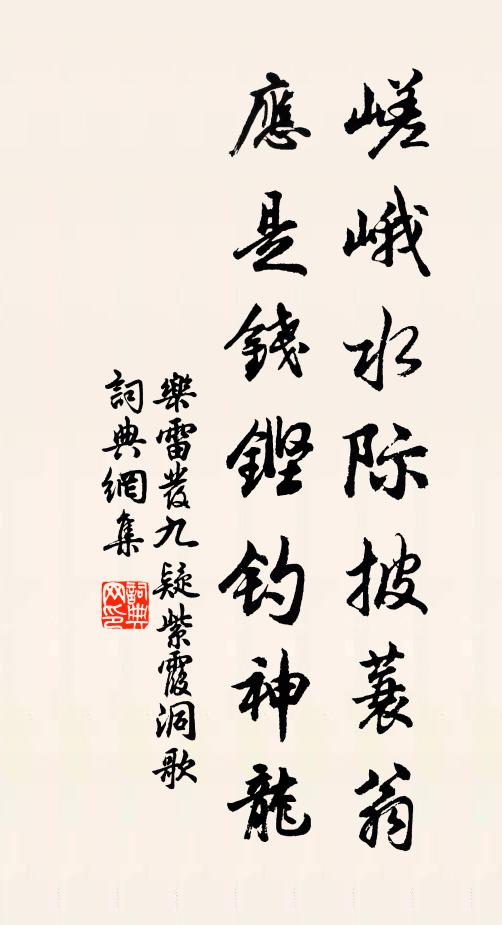 嵯峨水际披蓑翁
應是錢鏗釣神龍
樂雷發九疑紫霞洞歌
詞典網集
詞典網印